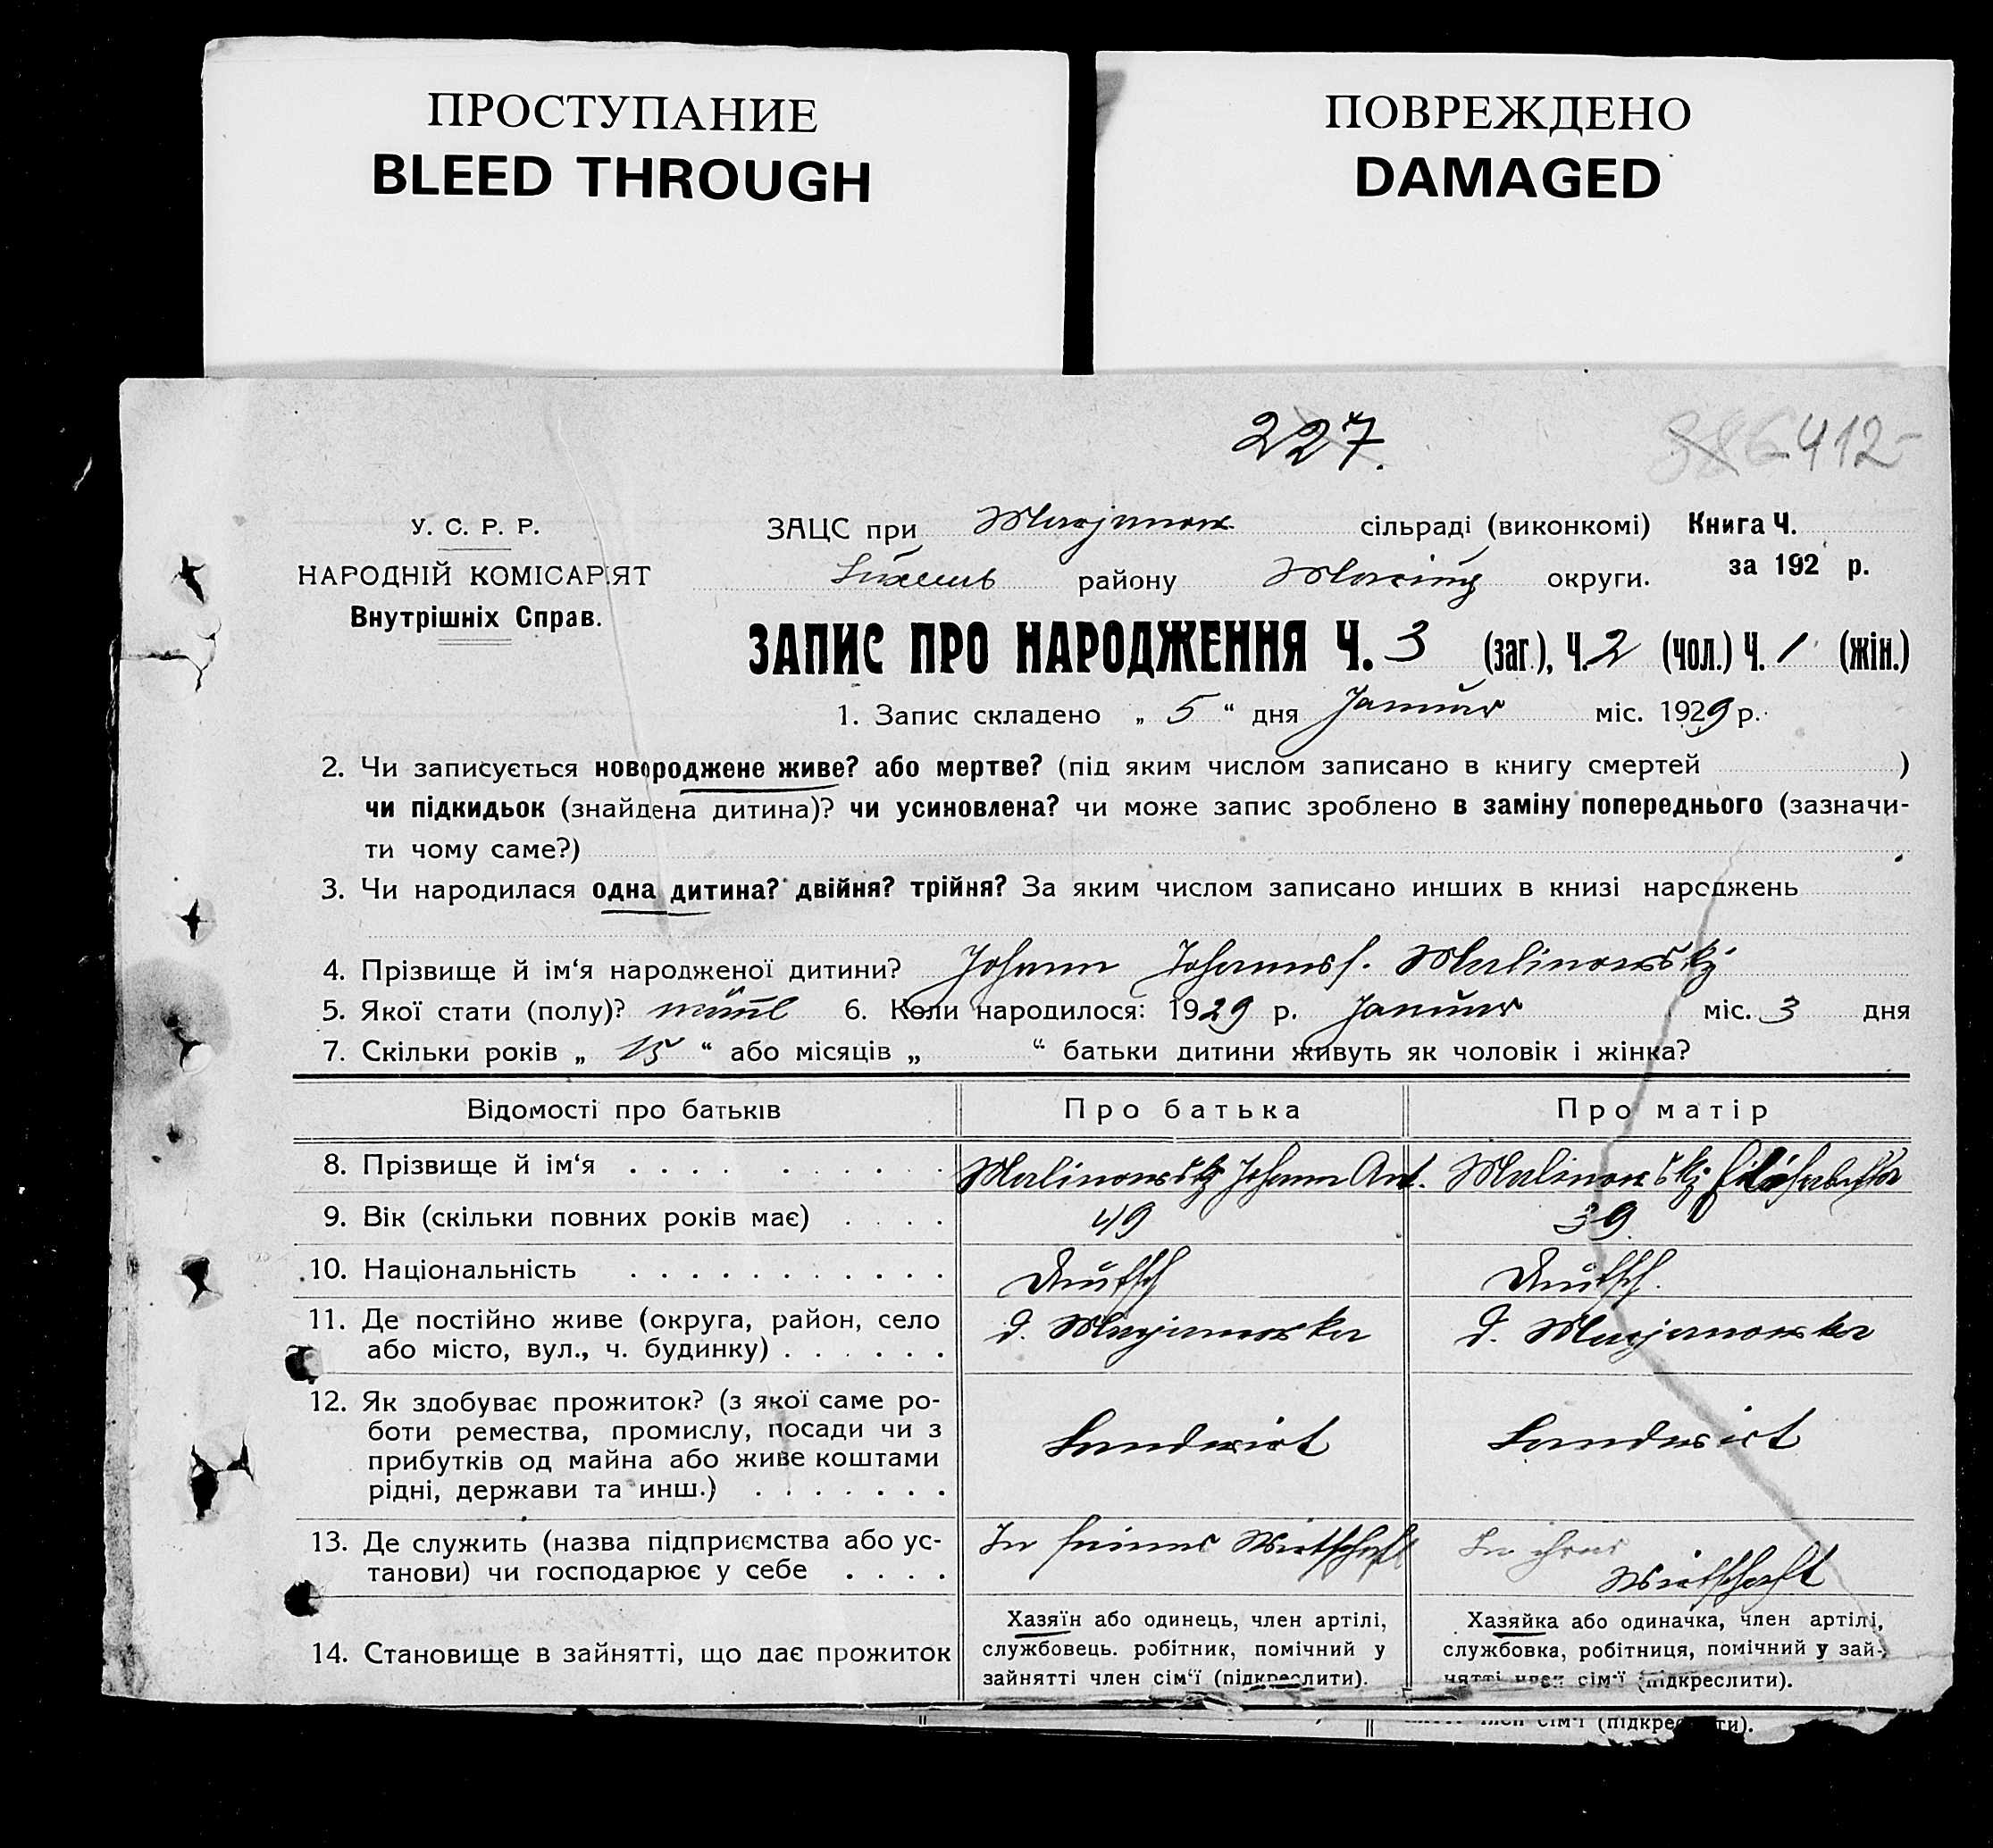 ПРОСТУПАНИЕ
BLEED THROUGH
ПОВРЕЖДЕНО
DAMAGED
227.
412
У. С. Р. Р.
НАРОДНІЙ КОМІСАРІЯТ
Внутрішніх Справ.
ЗАЦС при сільраді (виконкомі) Книга Ч.
району округи. за 192 р.
ЗАПИС ПРО НАРОДЖЕННЯ Ч. 3 (заг.), Ч. 2 (чол.) Ч. 1 (жін.)
1. Запис складено „ 5 “ дня Januar міс. 1929 р.
2. Чи записується новороджене живе? або мертве? (під яким числом записано в книгу смертей )
чи підкидьок (знайдена дитина)? чи усиновлена? чи може запис зроблено в заміну попереднього (зазначи-
ти чому саме?)
3. Чи народилася одна дитина? двійня? трійня? За яким числом записано инших в книзі народжень
4. Прізвище й ім‘я народженої дитини? Johann Johannes. Malinowskj
5. Якої стати (полу)? männl 6. Коли народилося: 1929 р. Januar міс. 3 дня
7. Скільки років „ 15 “ або місяців „ “ батьки дитини живуть як чоловік і жінка?
Відомості про батьків Про батька Про матір
8. Прізвище й ім‘я . . . . Malinowskj Johann Ant. Malinowskj
9. Вік (скільки повних років має) . . . . 49 39
10. Національність . . . . Deutsch Deutsch.
11. Де постійно живе (округа, район, село
або місто, вул., ч. будинку) . . . . . . d. Marjanowka d. Marjanowka
12. Як здобуває прожиток? (з якої саме ро-
боти ремества, промислу, посади чи з
прибутків од майна або живе коштами
рідні, держави та инш.) . . . . . . . Landwirt Landwirt
13. Де служить (назва підприємства або ус-
танови) чи господарює у себе . . . . In seiner Wirtschaft In ihrer Wirtschaft
14. Становище в зайнятті, що дає прожиток
Хазяїн або одинець, член артілі,
службовець. робітник, помічний у
зайнятті член сім‘ї (підкреслити).
Хазяйка або одиначка, член артілі,
службовка, робітниця, помічний у зай-
нятті член сім‘ї (підкреслити).
член сім‘ї (підкреслити).